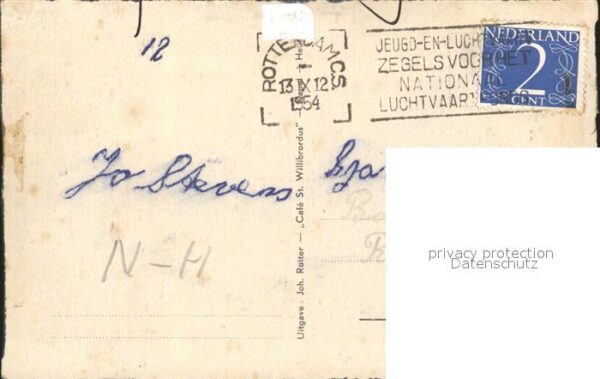 12
ROTTERDAM CS
13 IX 12
1954
JEUGD-EN-LUCHT
ZEGELS VOOR HET
NATIONAAL
LUCHTVAART
NEDERLAND
2
CENT
Jo Stevens
N-H
Uitgave Joh. Reiter — „Café St. Willibrordus"
privacy protection
Datenschutz